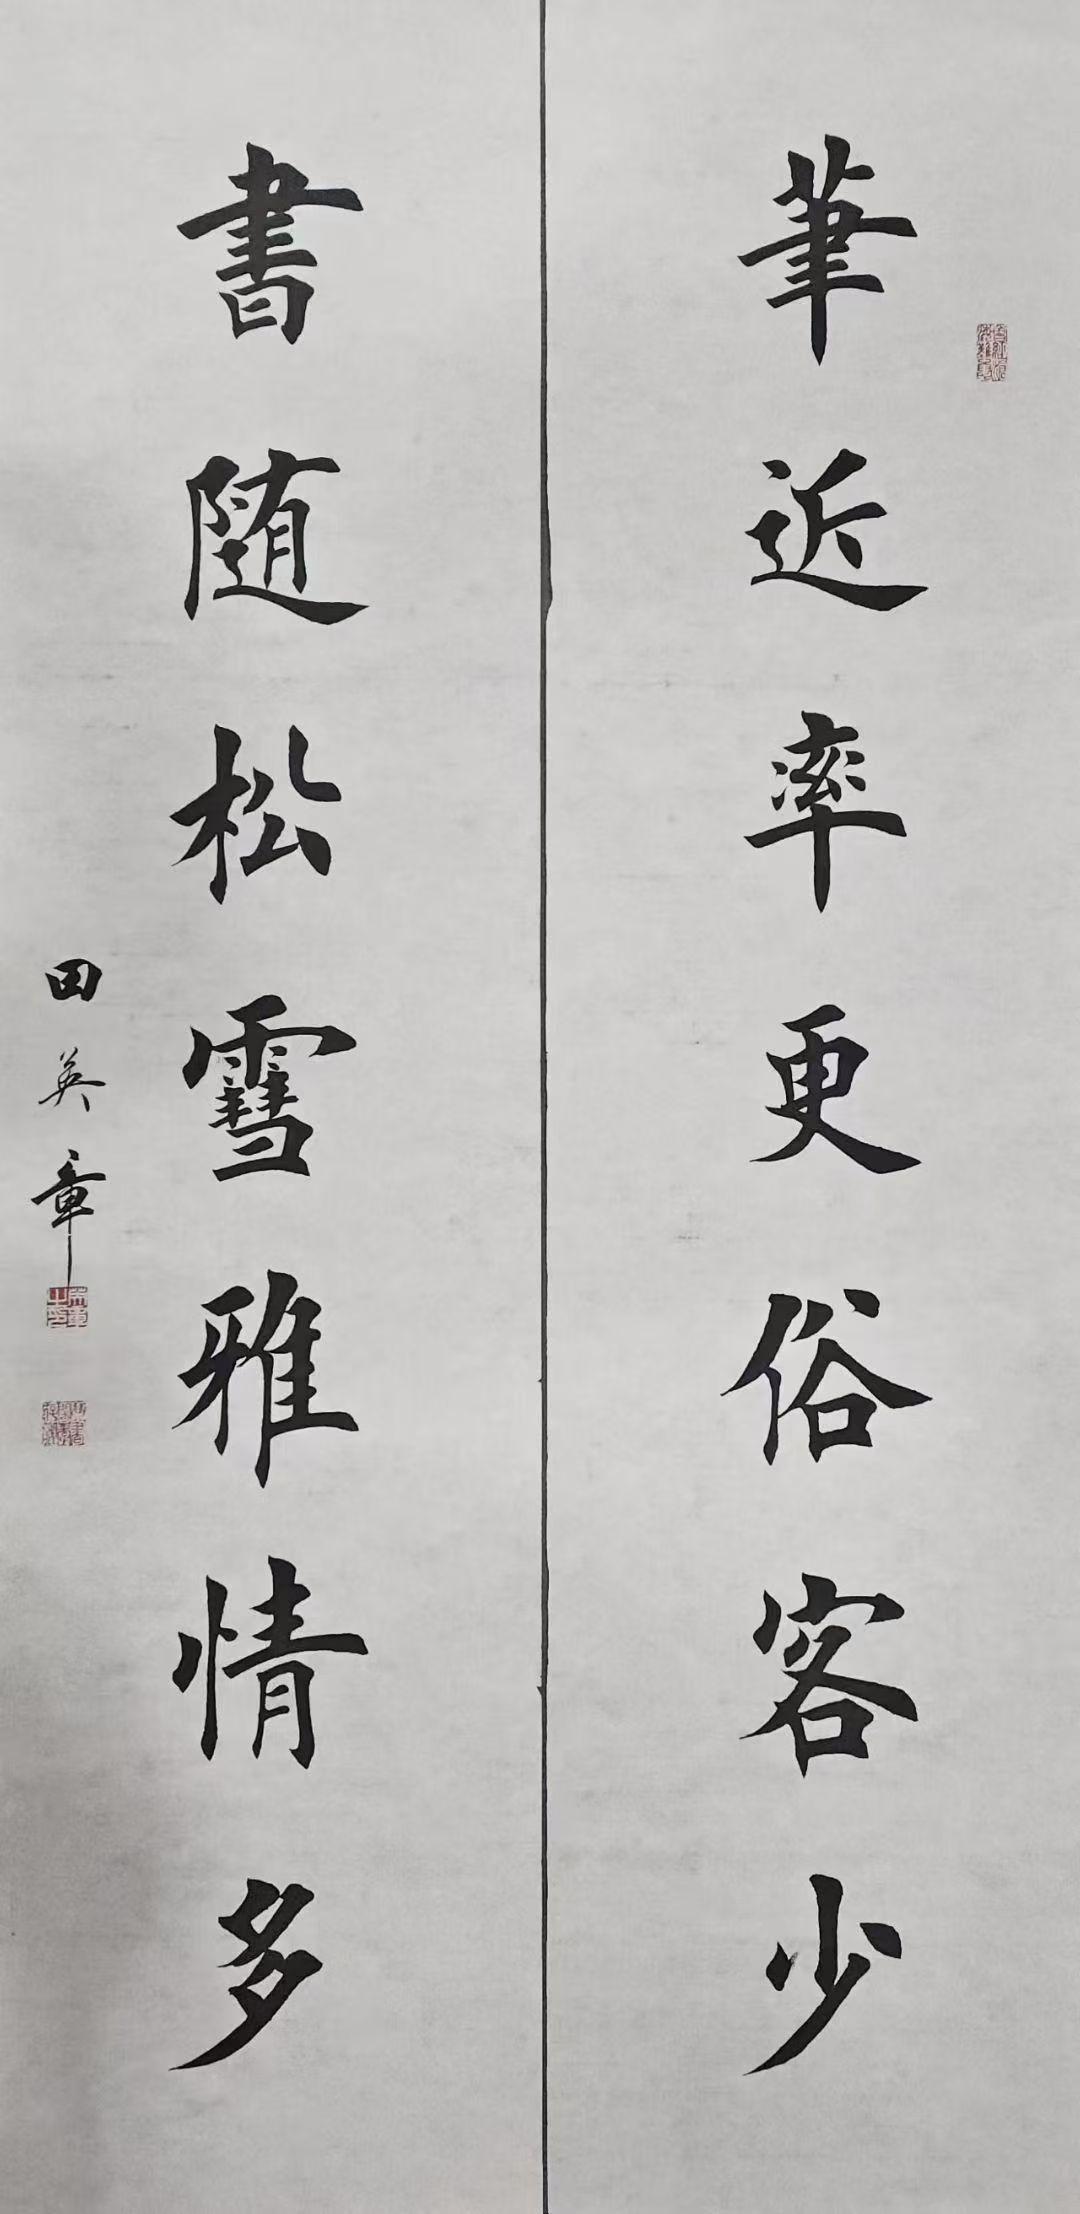 筆近率更俗客少
書随松雪雅情多
田英章